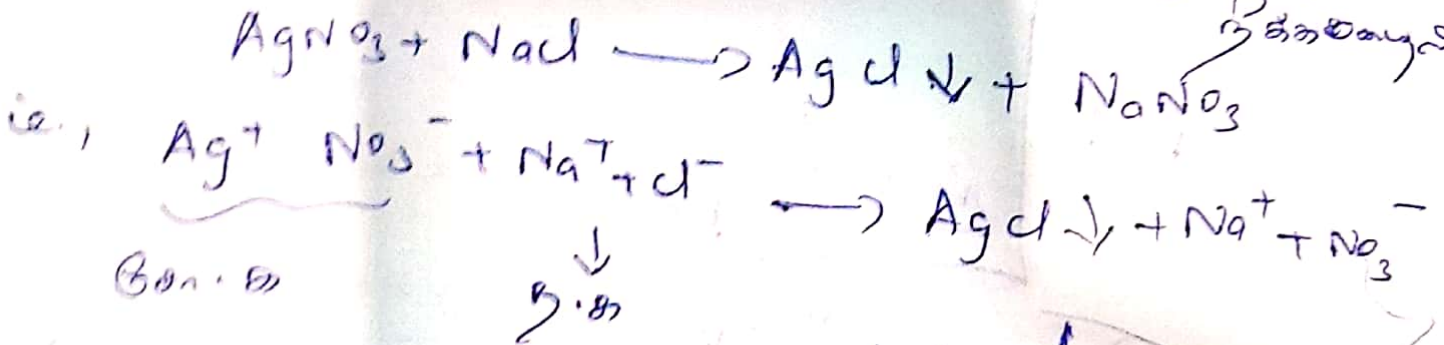 AgNO₃ + NaCl ⟶ AgCl ↓ + NaNO₃
ie., Ag⁺ NO₃⁻ + Na⁺ + Cl⁻ ⟶ AgCl ↓, + Na⁺ + NO₃⁻
சோ.க
ந.க